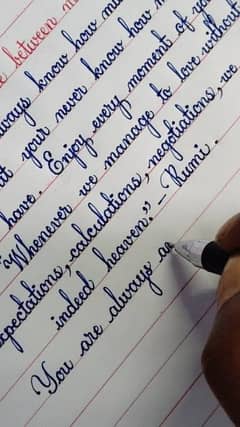 between m
ways know how mu
t your never know how m
have. Enjoy every moment of yo
"Whenever we manage to love without
expectations, calculations, negotiations, we
indeed heaven." - Rumi.
You are always a